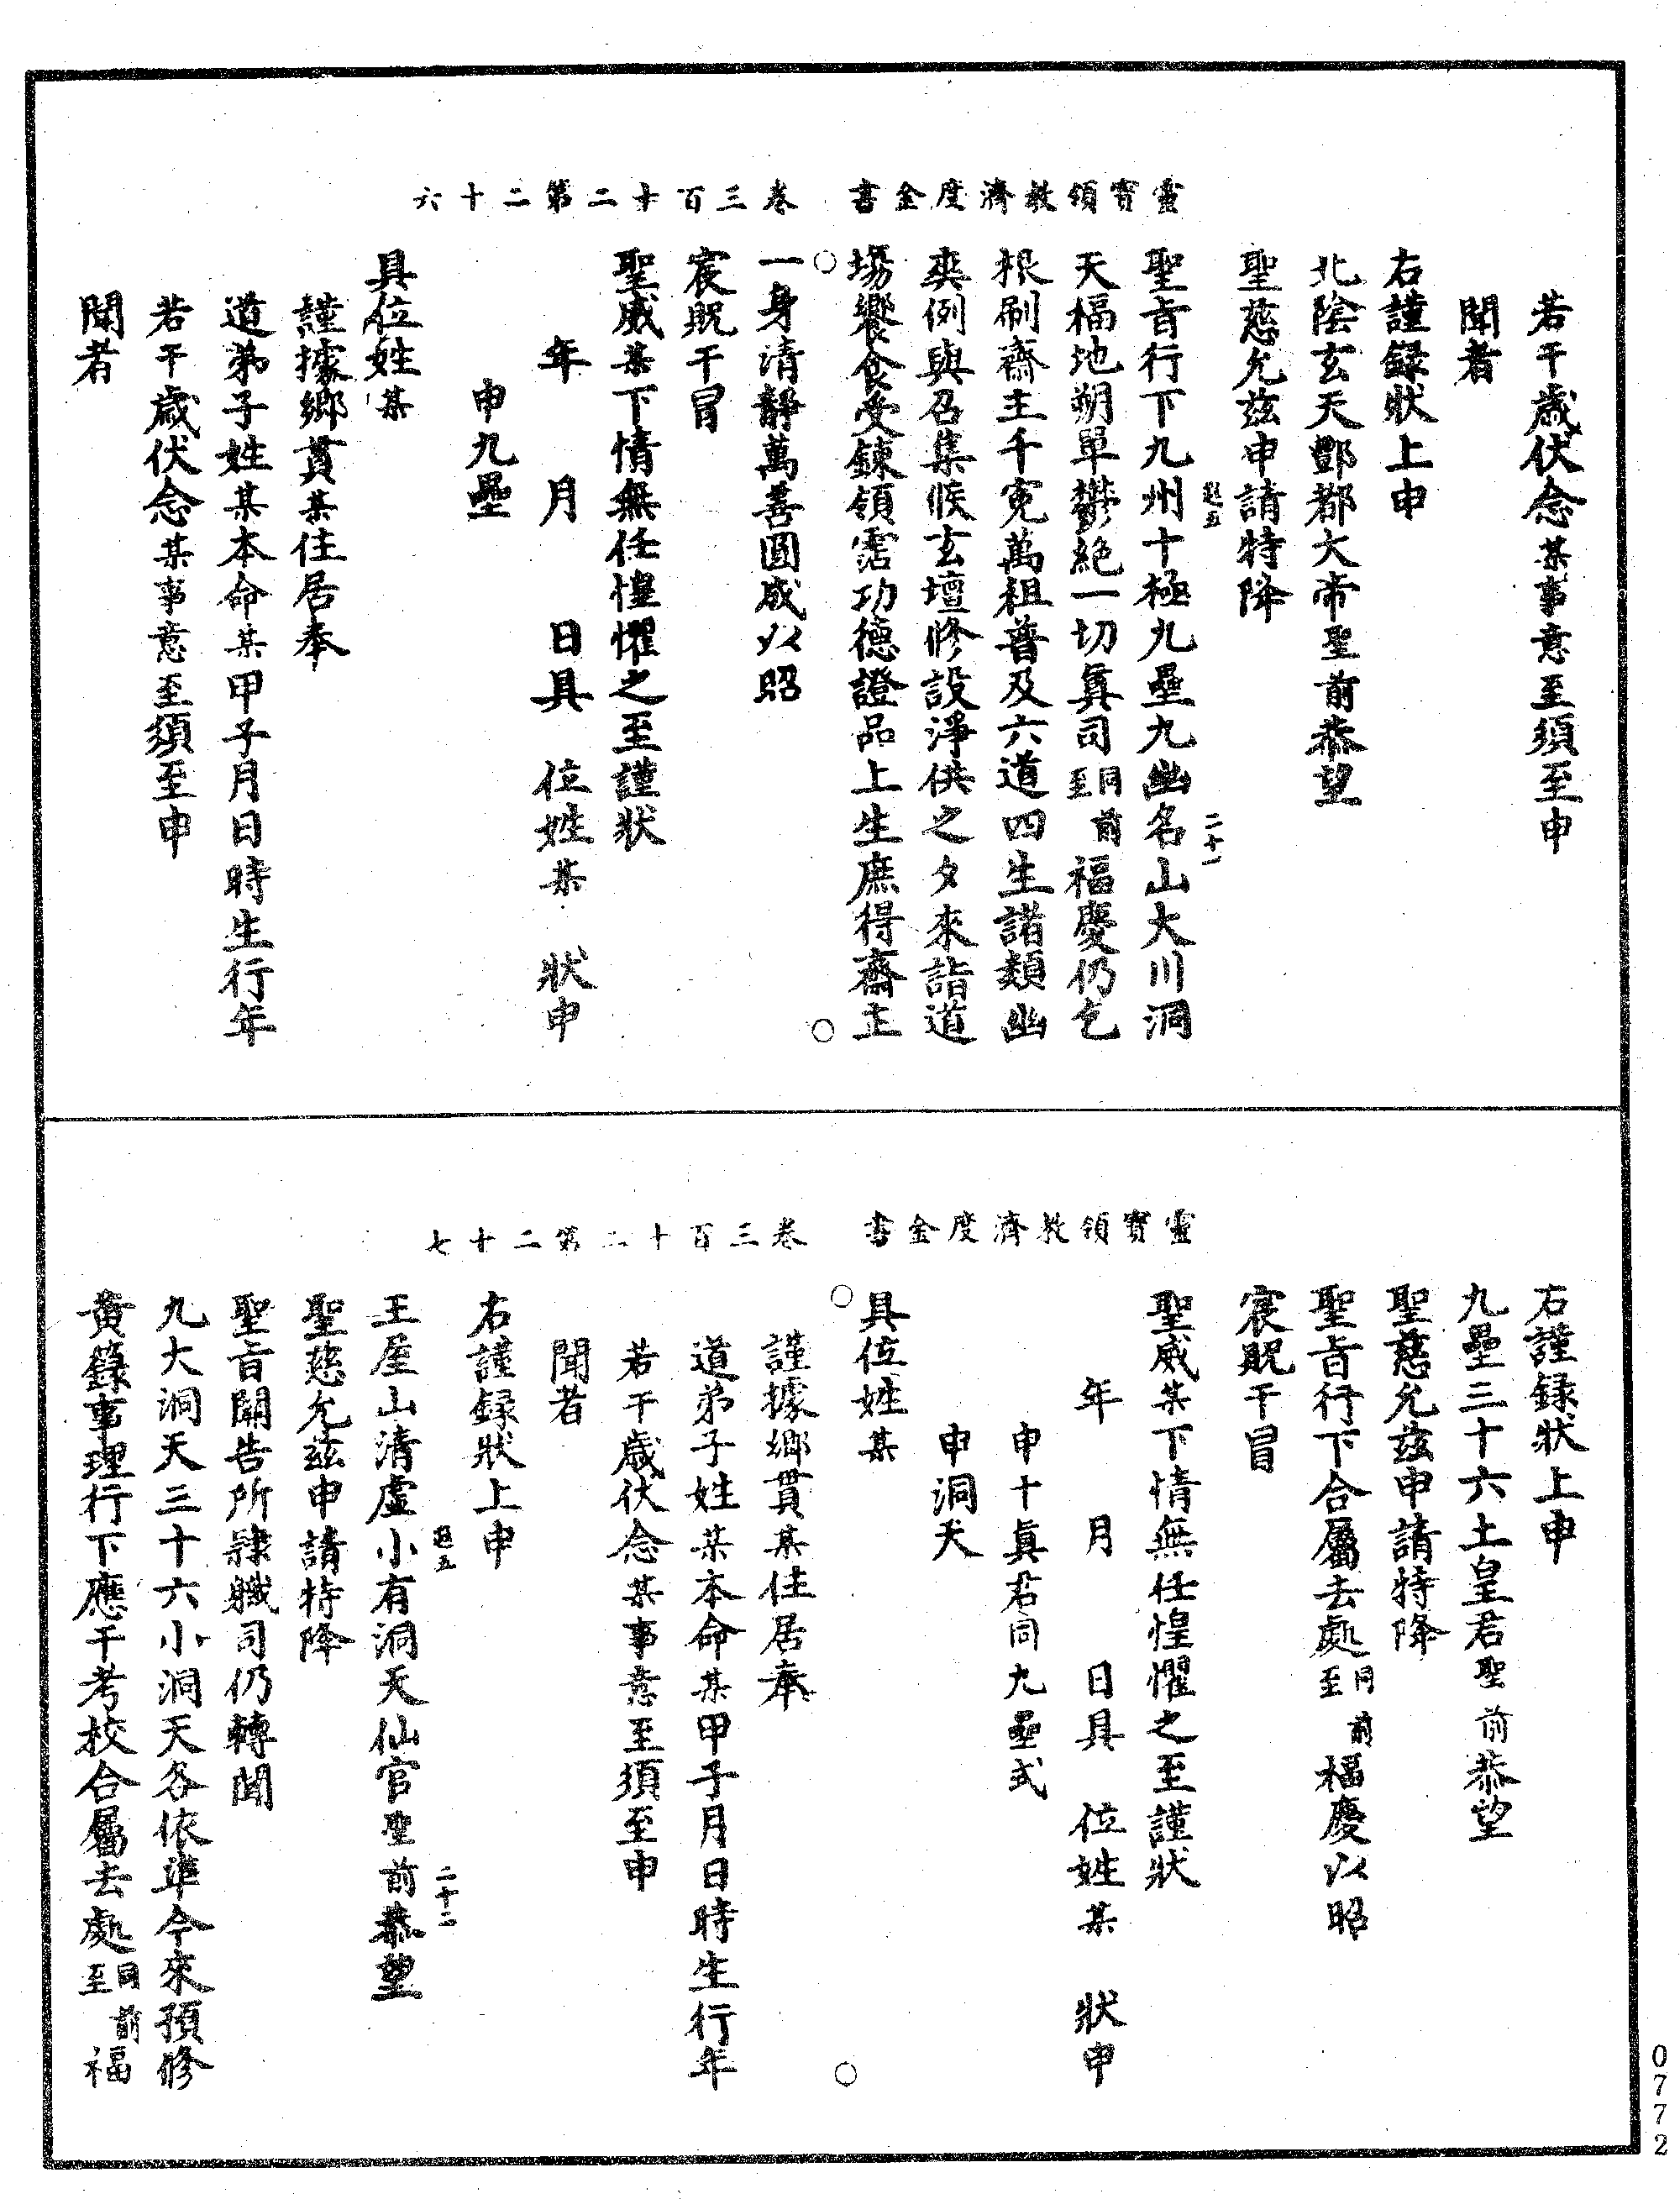 靈寶領教濟度金書　卷三百十二第二十六
若干歲伏念某事意至須至申
聞者
右謹錄狀上申
北陰玄天酆都大帝聖前恭望
聖慈允茲申請特降
聖旨行下九州十極九壘九幽名山大川洞
天福地朔單鬱絕一切冥司至同前福慶仍乞
根刷齋主千寃萬祖普及六道四生諸類幽
爽例與召集候玄壇修設淨供之夕來詣道
場饗食受鍊領霑功德證品上生庶得齋主
一身清靜萬善圓成以昭
宸貺干冒
聖威某下情無任惶懼之至謹狀
年　月　日具　位姓某　狀申
申九壘
具位姓某
謹據鄉貫某住居奉
道弟子姓某本命某甲子月日時生行年
若干歲伏念某事意至須至申
聞者
二十一
靈寶領教濟度金書　卷三百十二第二十七
右謹錄狀上申
九壘三十六土皇君聖前恭望
聖慈允茲申請特降
聖旨行下合屬去處至同前福慶以昭
宸貺干冒
聖威某下情無任惶懼之至謹狀
年　月　日具　位姓某　狀申
申十眞君同九壘式
申洞天
具位姓某
謹據鄉貫某住居奉
道弟子姓某本命某甲子月日時生行年
若干歲伏念某事意至須至申
聞者
右謹錄狀上申
二十二
王屋山清虛小有洞天仙官聖前恭望
聖慈允茲申請特降
聖旨關告所隸職司仍轉聞
九大洞天三十六小洞天各依準今來預修
黃籙事理行下應干考校合屬去處至同前福
0772